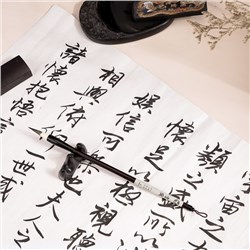 宙之
類之盛所以
懷足以極視聽
娛信可也夫人之
相與俯仰一世或
諸懷抱悟